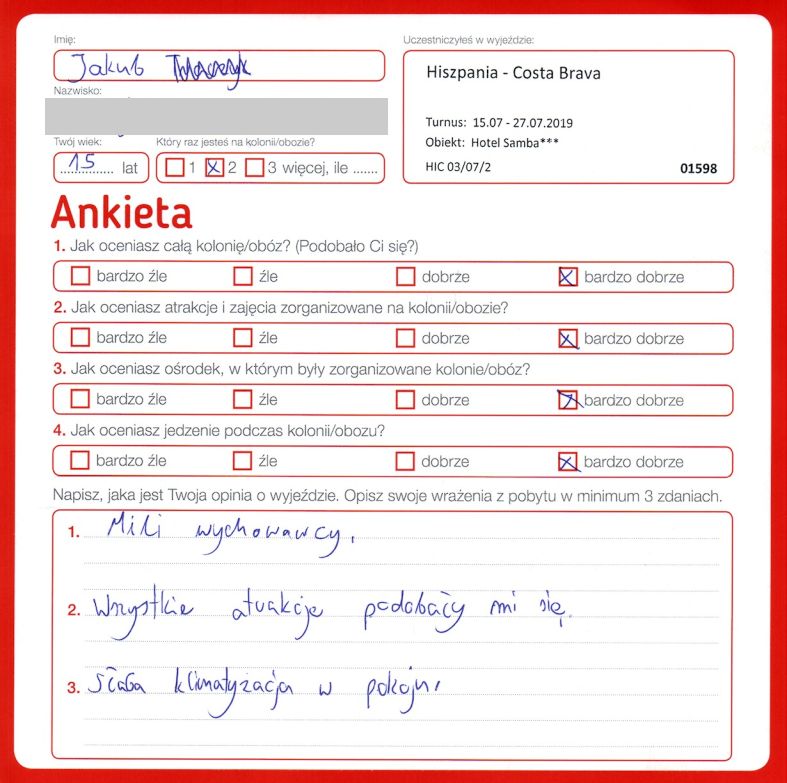 Imię:
Jakub
Nazwisko:
Twój wiek:
Który raz jesteś na kolonii/obozie?
15 lat
1 x 2 3 więcej, ile .......
Uczestniczyłeś w wyjeździe:
Hiszpania - Costa Brava
Turnus: 15.07 - 27.07.2019
Obiekt: Hotel Samba***
HIC 03/07/2 01598
Ankieta
1. Jak oceniasz całą kolonię/obóz? (Podobało Ci się?)
bardzo źle źle dobrze x bardzo dobrze
2. Jak oceniasz atrakcje i zajęcia zorganizowane na kolonii/obozie?
bardzo źle źle dobrze x bardzo dobrze
3. Jak oceniasz ośrodek, w którym były zorganizowane kolonie/obóz?
bardzo źle źle dobrze x bardzo dobrze
4. Jak oceniasz jedzenie podczas kolonii/obozu?
bardzo źle źle dobrze x bardzo dobrze
Napisz, jaka jest Twoja opinia o wyjeździe. Opisz swoje wrażenia z pobytu w minimum 3 zdaniach.
1. Mili wychowawcy.
2. Wszystkie atrakcje podobały mi się.
3. Słaba klimatyzacja w pokoju.